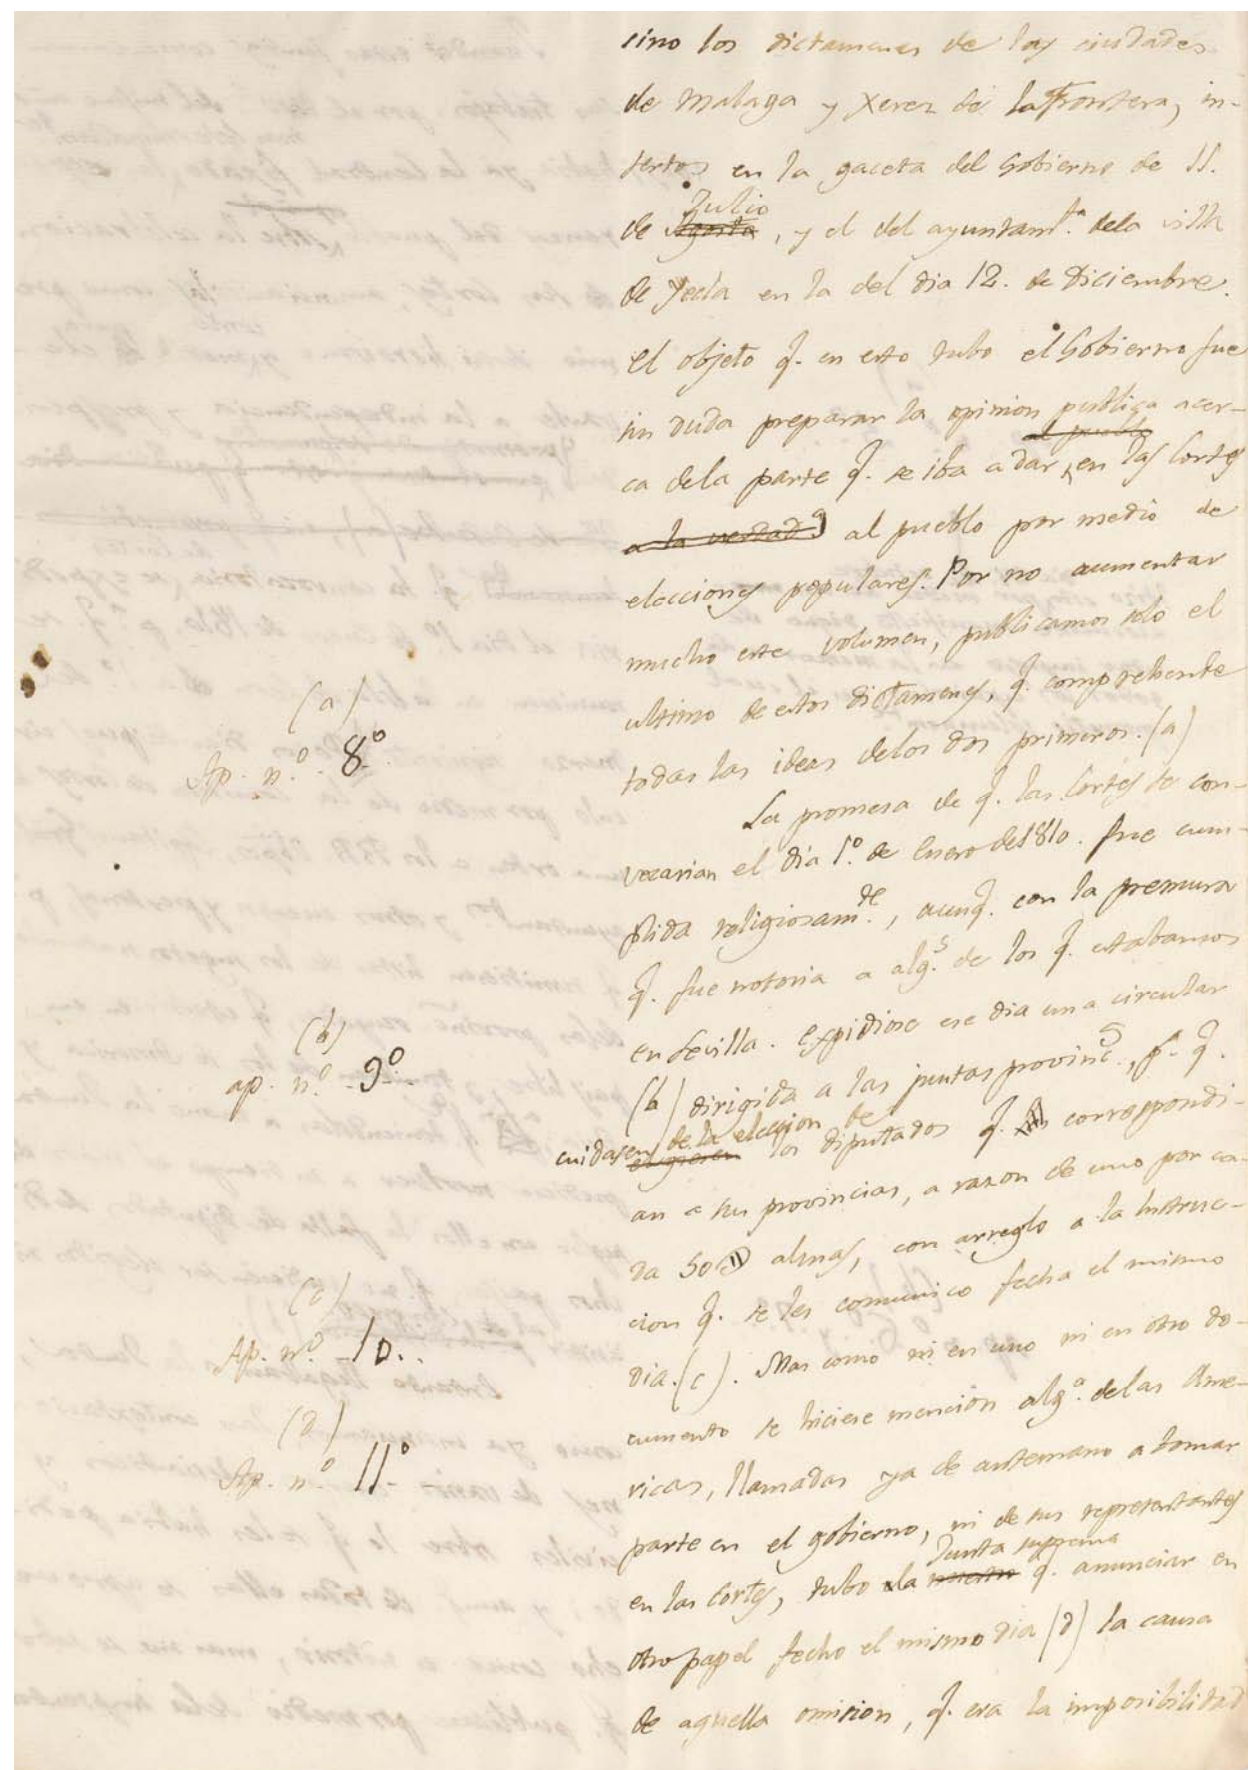 sino los dictamenes de las ciudades
de Malaga y Xerez de la Frontera, in-
sertos en la gaceta del Gobierno de 11.
Julio
de Agosto, y el del ayuntam.to dela villa
de Yecla en la del dia 12. de Diciembre.
El objeto q. en esto tubo el Gobierno fue
sin duda preparar la opinion publica acer-
al pueblo
ca dela parte q. se iba a dar, en las Cortes
a la verdad al pueblo por medio de
elecciones populares. Por no aumentar
mucho este volumen, publicamos solo el
ultimo de estos dictamenes, q. comprehende
todas las ideas delos dos primeros. (a)
(a)
Ap. n.o 8.o
La promesa de q. las Cortes se con-
vocarian el dia 1.o de Enero de 1810. fue cum-
plida religiosam.te, aunq. con la premura
q. fue notoria a alg.s de los q. estabamos
en Sevilla. Expidiose ese dia una circular
(b)
ap. n.o 9.o
(b) dirigida a las juntas provinc.s, p. q.
cuidasen de la eleccion de
eligiesen los diputados q. correspondi-
an a sus provincias, a razon de uno por ca-
da 50 almas, con arreglo a la Instruc-
cion q. se les comunico fecha el mismo
(c)
Ap. n.o 10..
dia. (c). Mas como ni en uno ni en otro do-
cumento se hiciese mencion alg.a delas Ame-
(d)
Ap. n.o 11.o
ricas, llamadas ya de antemano a tomar
parte en el gobierno, ni de sus representantes
Junta suprema
en las Cortes, tubo la q. anunciar en
otro papel fecho el mismo dia (d) la causa
de aquella omision, q. era la imposibilidad